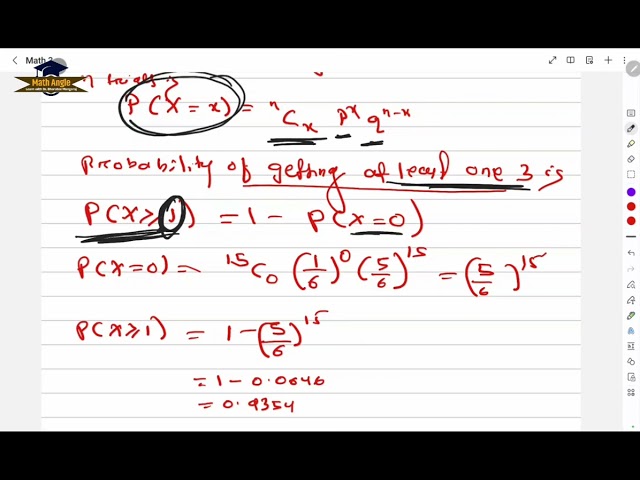 Math 2
Math Angle
n trials is
P(X = x) = ⁿCₓ pˣ qⁿ⁻ˣ
Probability of getting at least one 3 is
P(X ≥ 1) = 1 - P(X = 0)
P(X = 0) = ¹⁵C₀ (1/6)⁰ (5/6)¹⁵ = (5/6)¹⁵
P(X ≥ 1) = 1 - (5/6)¹⁵
= 1 - 0.0646
= 0.9354